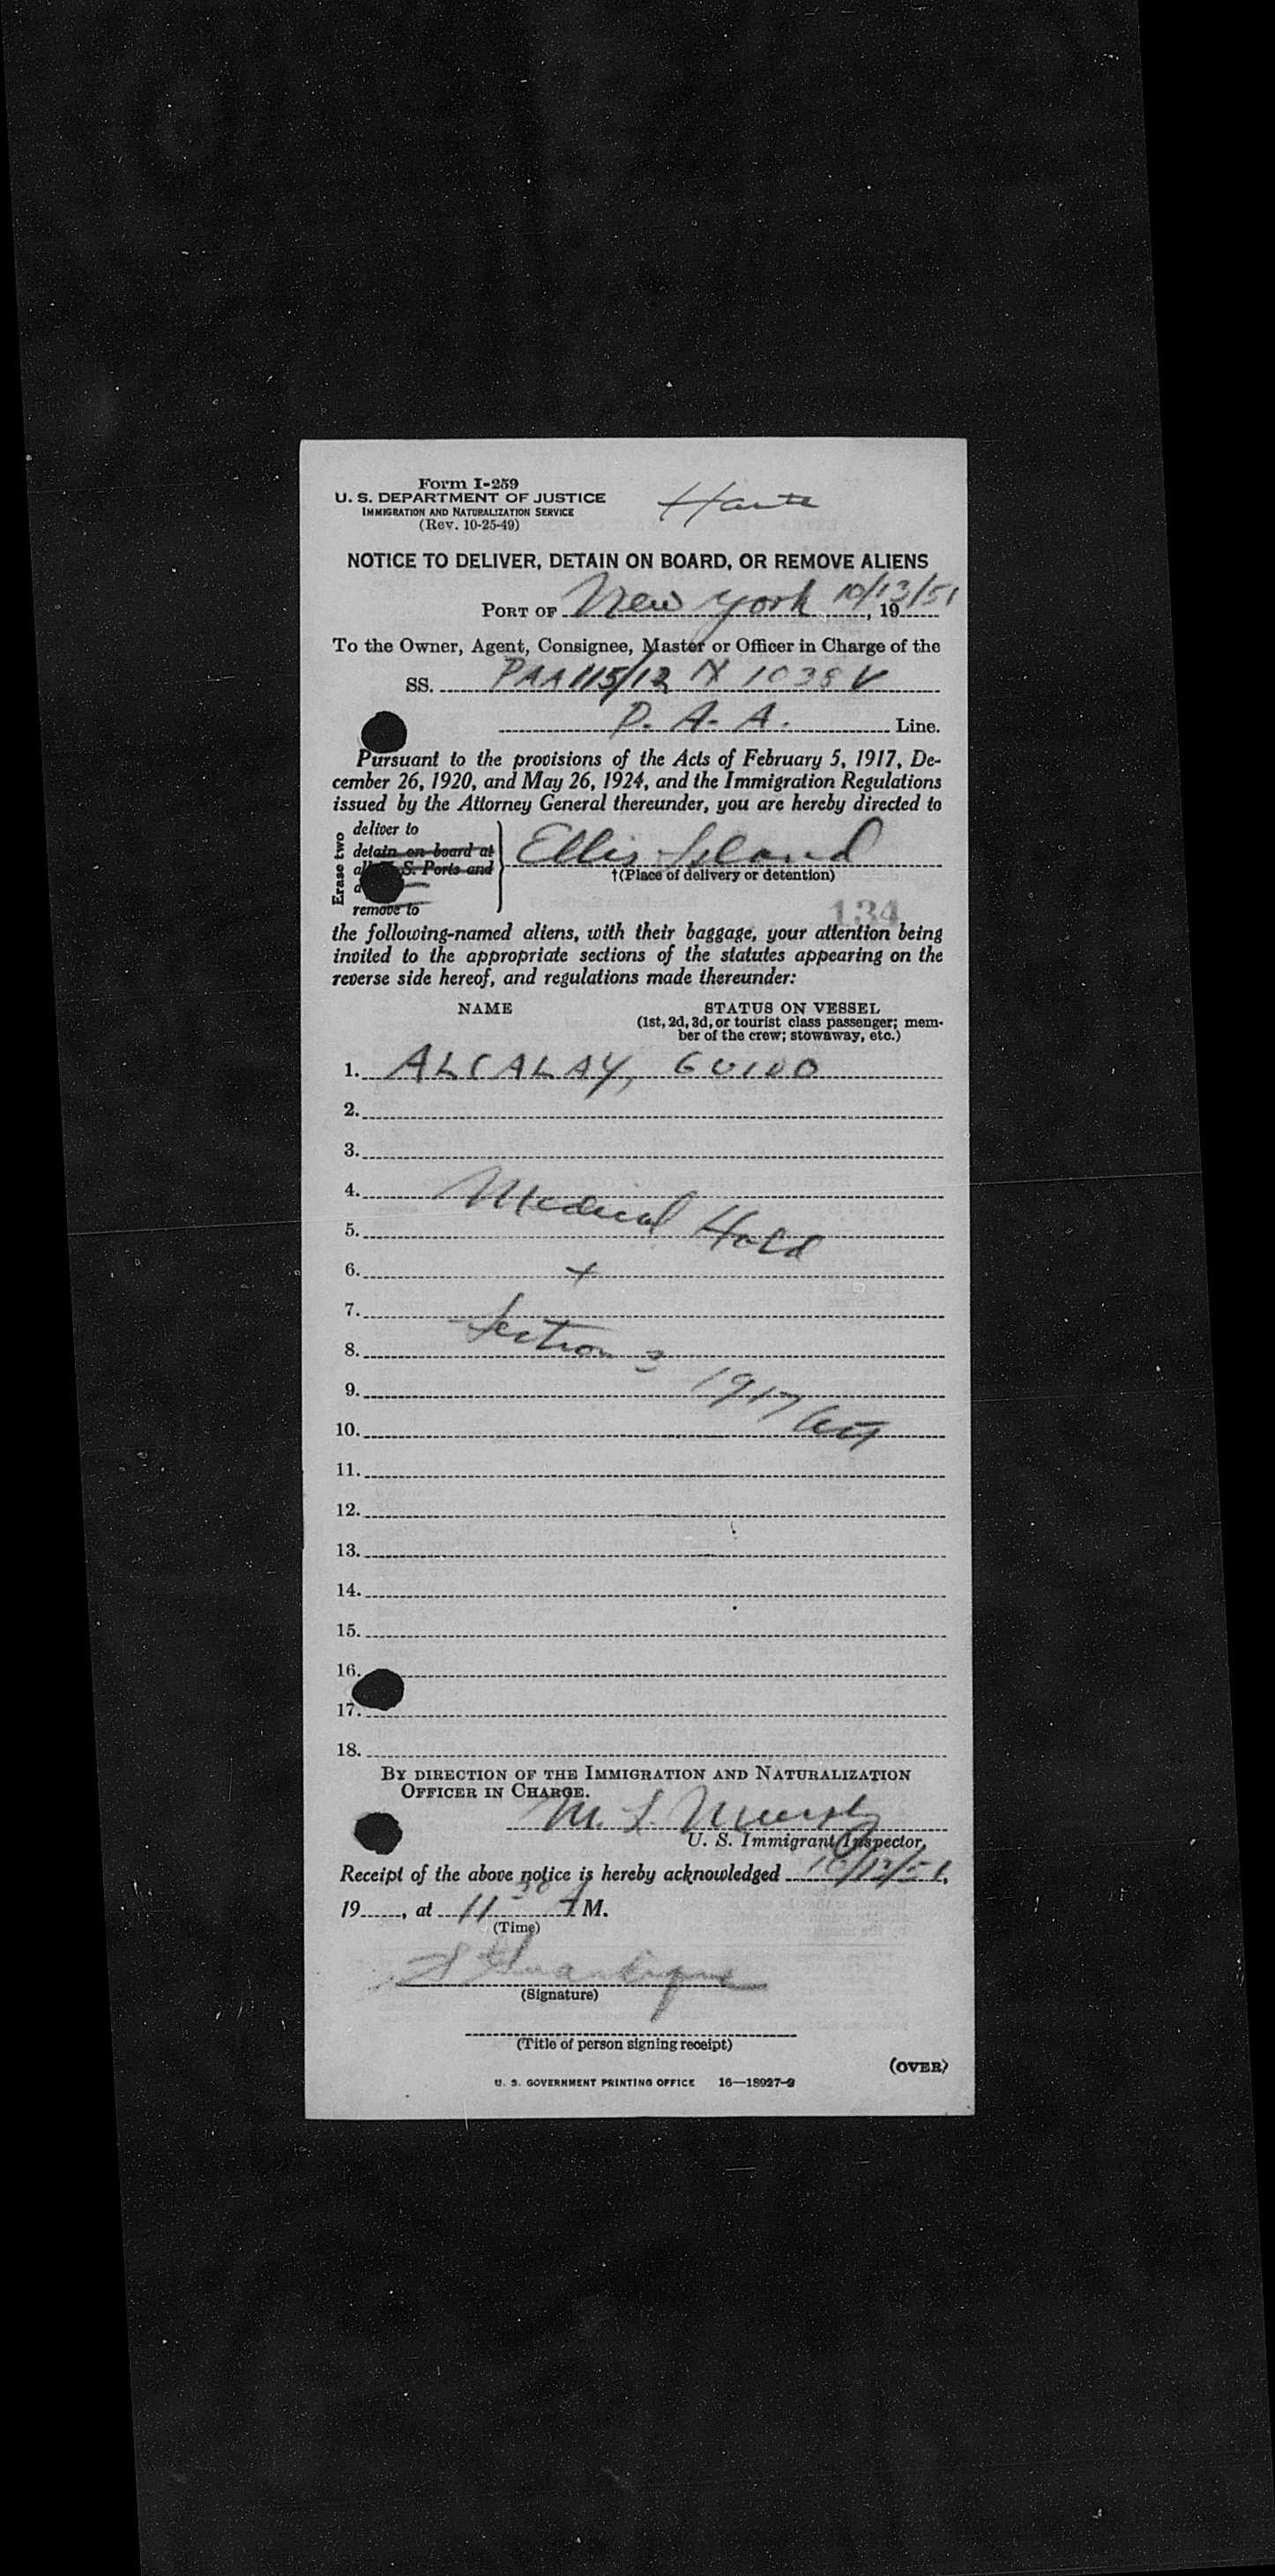 Form I-259
U. S. DEPARTMENT OF JUSTICE
IMMIGRATION AND NATURALIZATION SERVICE
(Rev. 10-25-49)
NOTICE TO DELIVER, DETAIN ON BOARD, OR REMOVE ALIENS
PORT OF New York 10/13/51, 19
To the Owner, Agent, Consignee, Master or Officer in Charge of the
SS. PAA 115/12 N 1038 V
P. A. A. Line.
Pursuant to the provisions of the Acts of February 5, 1917, De-
cember 26, 1920, and May 26, 1924, and the Immigration Regulations
issued by the Attorney General thereunder, you are hereby directed to
Erase two
deliver to
detain on board at
S. Ports and
remove to
Ellis Island
†(Place of delivery or detention)
134
the following-named aliens, with their baggage, your attention being
invited to the appropriate sections of the statutes appearing on the
reverse side hereof, and regulations made thereunder:
NAME
STATUS ON VESSEL
(1st, 2d, 3d, or tourist class passenger; mem-
ber of the crew; stowaway, etc.)
1. ALCALAY, GUIDO
2.
3.
4. Medical Hold
5.
6. +
7.
8. Section 3
9. 1917 Act
10.
11.
12.
13.
14.
15.
16.
17.
18.
BY DIRECTION OF THE IMMIGRATION AND NATURALIZATION
OFFICER IN CHARGE.
M. L. Murphy
U. S. Immigrant Inspector.
Receipt of the above notice is hereby acknowledged 10/13/51,
19, at 11 30 A M.
(Time)
(Signature)
(Title of person signing receipt)
(OVER)
U. S. GOVERNMENT PRINTING OFFICE 16—18927-2